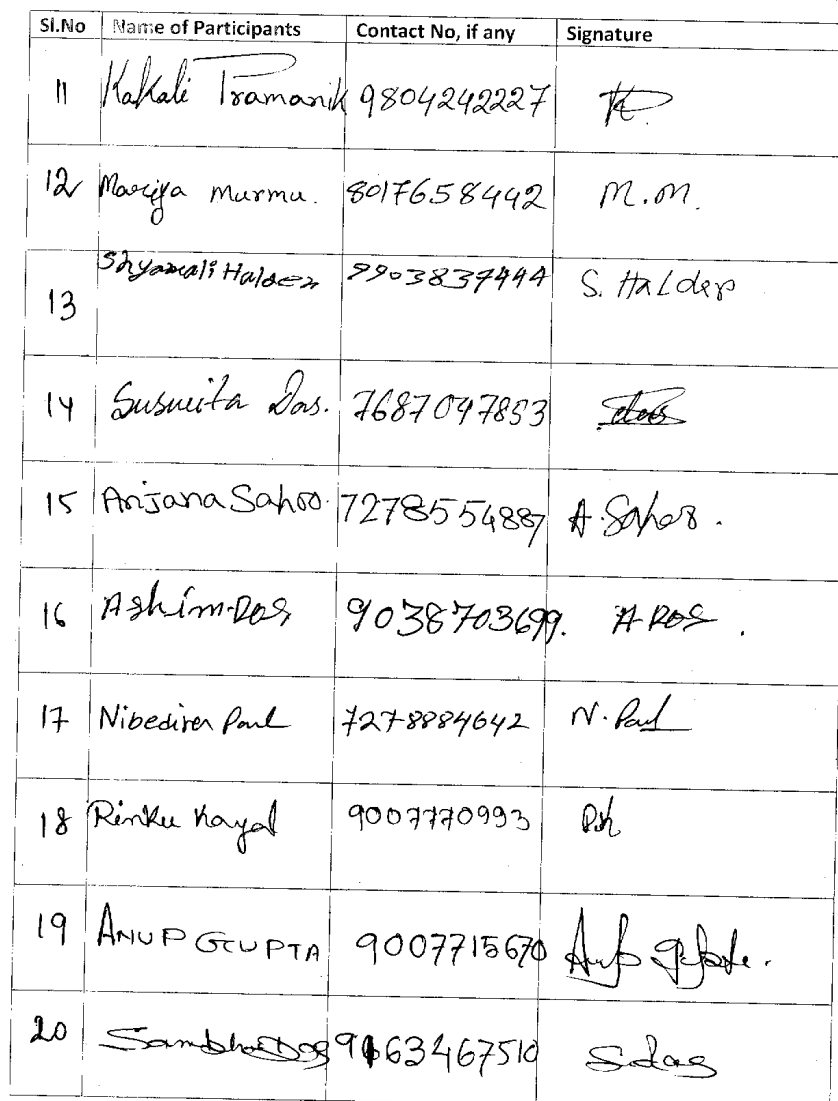 Sl.No Name of Participants Contact No, if any Signature
11 Kakali Pramanik 9804242227
12 Mariya Murmu. 8017658442 M.M.
13 Shyamali Halder 9903837444 S. Halder
14 Susmita Das. 7687047853
15 Anjana Sahoo. 7278554887 A. Sahoo.
16 Ashim Das 9038703699. A Das.
17 Nibedita Paul 7278884642 N. Paul
18 Rinku Kayal 9007770993
19 ANUP GUPTA 9007715670 Anup Gupta.
20 Sambhu Das 9163467510 S. das